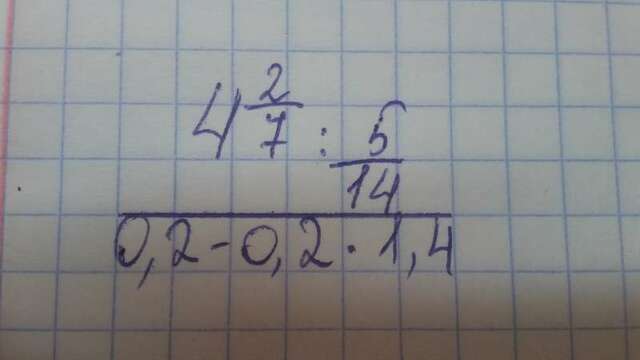 4 2/7 : 5/14
0,2 - 0,2 · 1,4